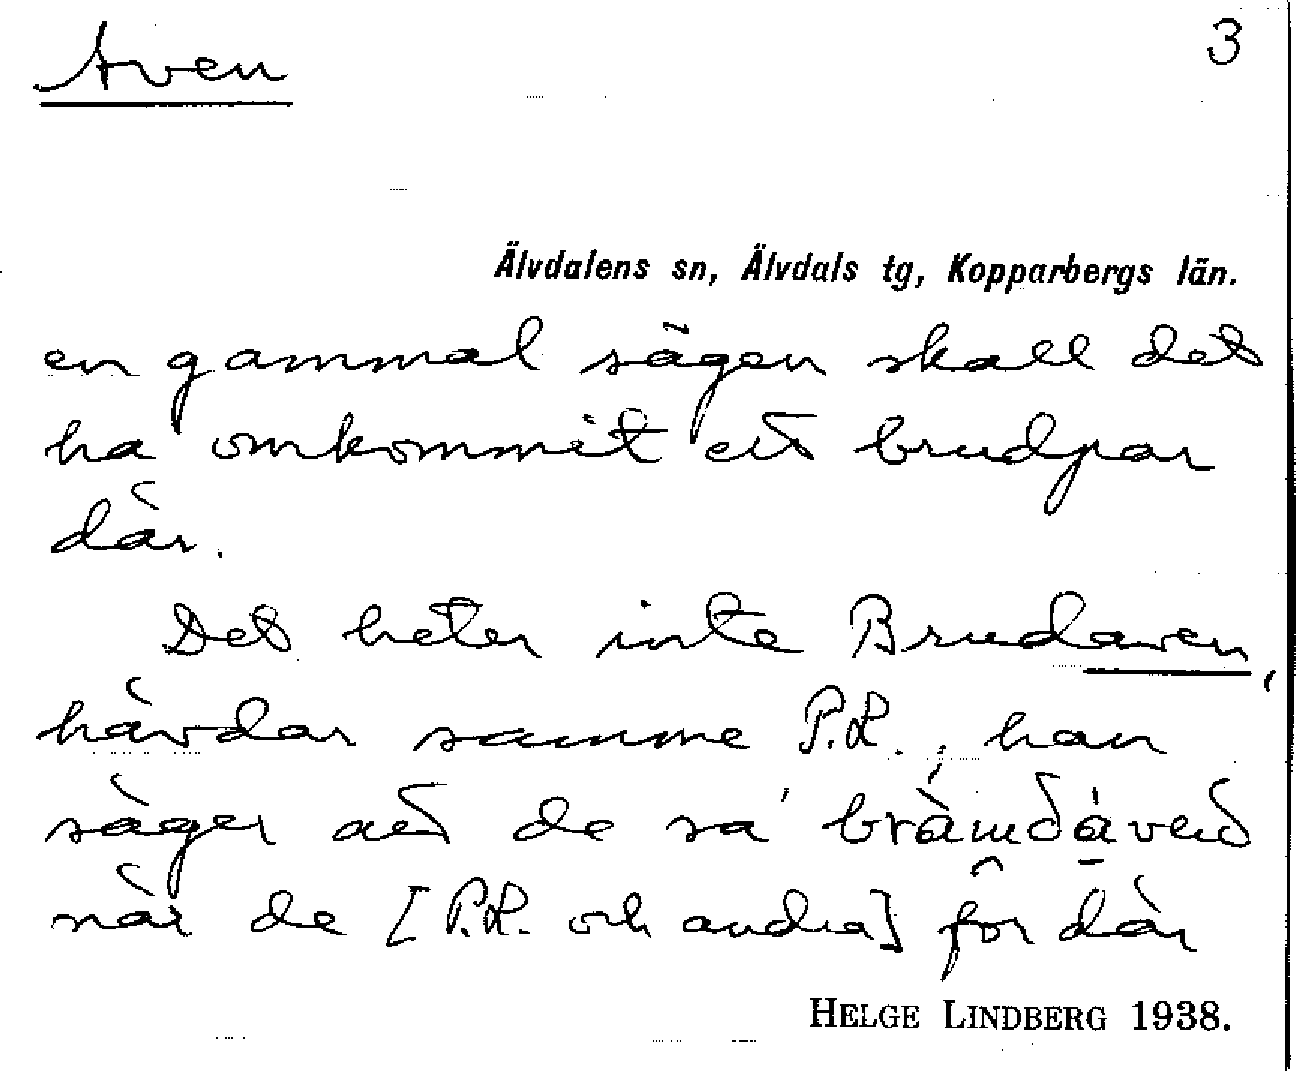 Aven
3
Älvdalens sn, Älvdals tg, Kopparbergs län.
en gammal sägen skall det
ha omkommit ett brudpar
där.
Det heter inte Brudaven,
hävdar samme P.L.; han
säger att de sa
när de [P.L. och andra] for där
HELGE LINDBERG 1938.